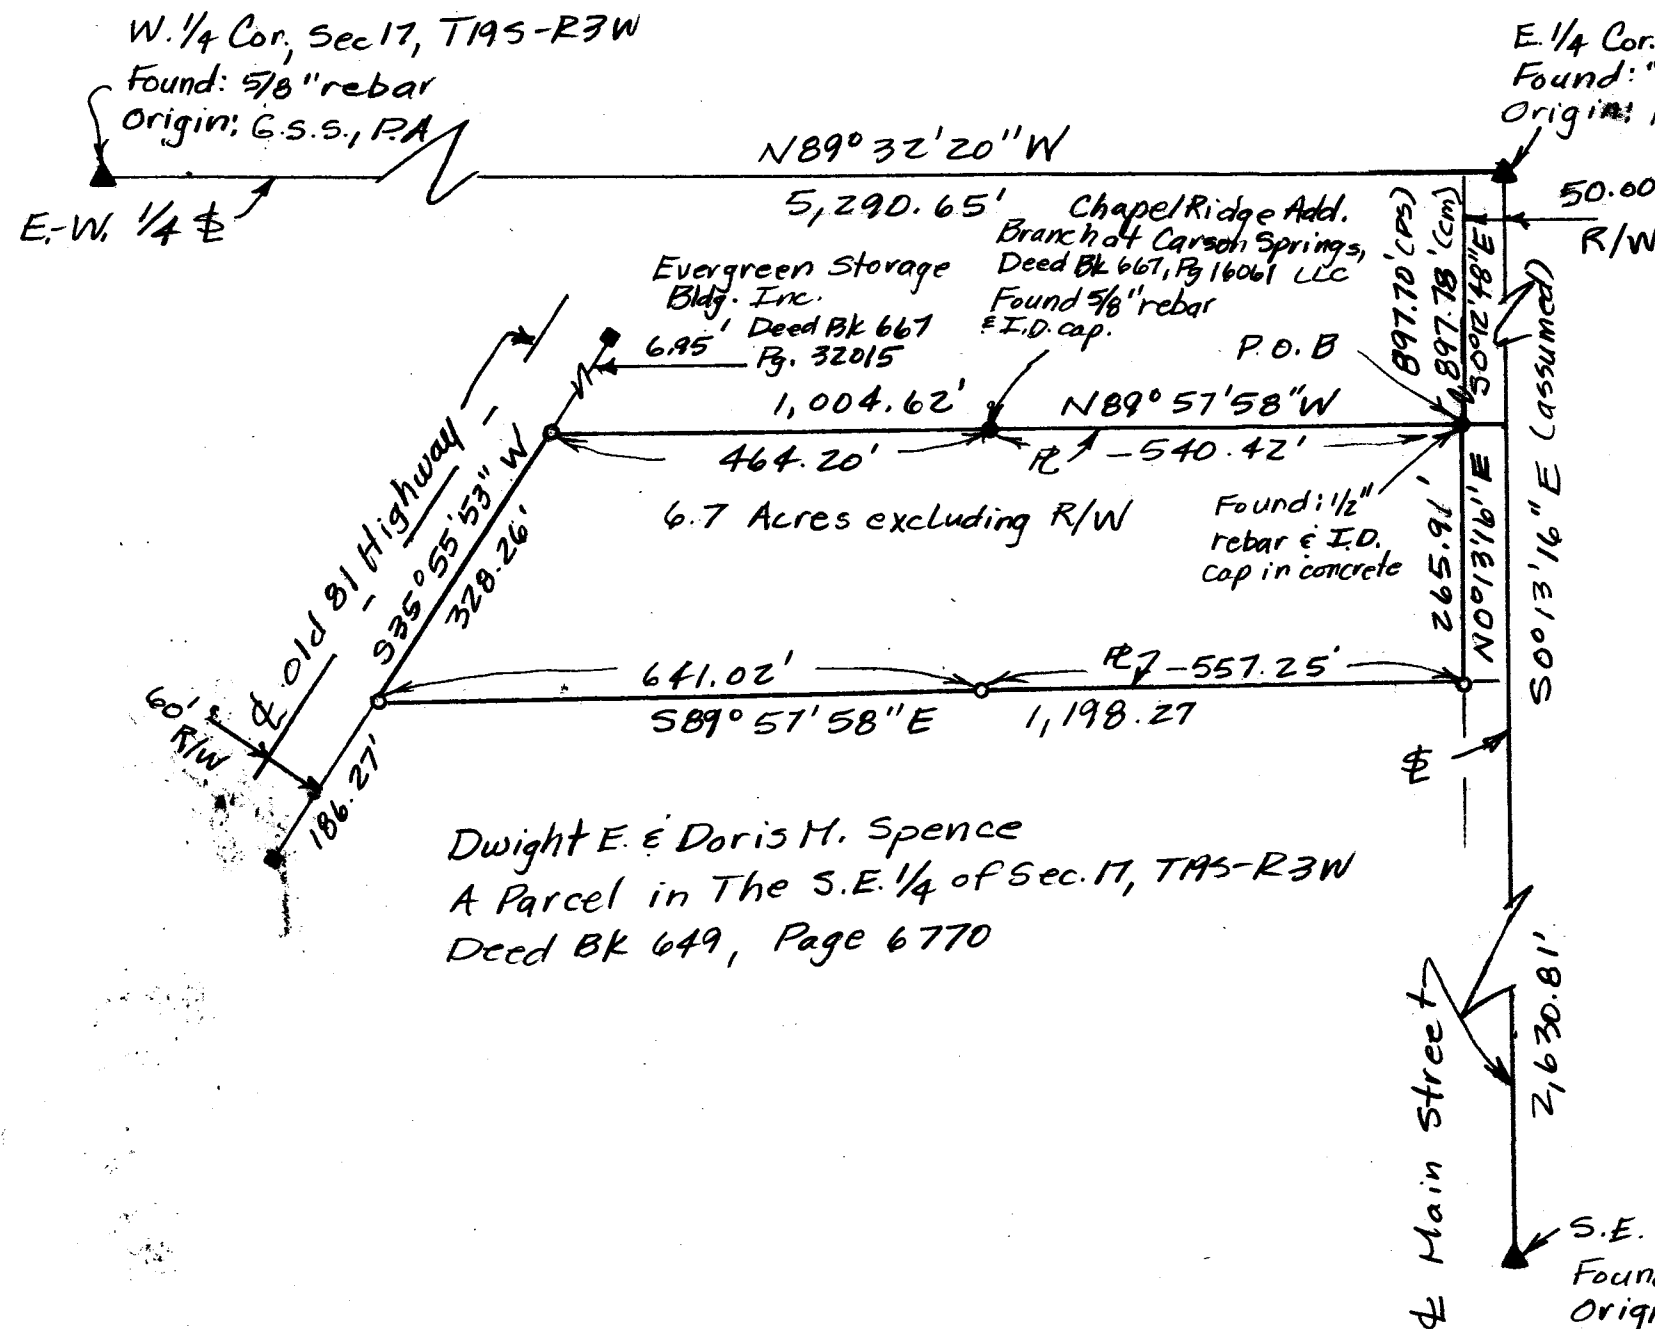 W. 1/4 Cor., Sec 17, T19S-R3W
Found: 5/8" rebar
Origin: G.S.S., P.A
E. 1/4 Cor.
Found: "
Origin:
N89° 32' 20" W
5,290.65'
E.-W. 1/4 ℄
50.00
R/W
Chapel Ridge Add.
Branch at Carson Springs,
Deed Bk 667, Pg 16061 LLC
Found 5/8" rebar
& I.D. cap.
Evergreen Storage
Bldg. Inc.
Deed Bk 667
Pg. 32015
6.95'
P.O.B
897.70' (PS)
897.78' (CM)
S0°12'48"E
S0°13'16" E (assumed)
1,004.62'
N89° 57' 58" W
464.20'
℄ -540.42'
6.7 Acres excluding R/W
Found: 1/2"
rebar & I.D.
cap in concrete
265.91'
N0°13'16" E
℄ Old 81 Highway
S35° 55' 53" W
328.26'
641.02'
℄ -557.25'
S89° 57' 58" E
1,198.27
60'
R/W
186.27'
℄
Dwight E. & Doris M. Spence
A Parcel in The S.E. 1/4 of Sec. 17, T19S-R3W
Deed Bk 649, Page 6770
℄ Main Street
2,630.81'
S.E.
Foun
Orig